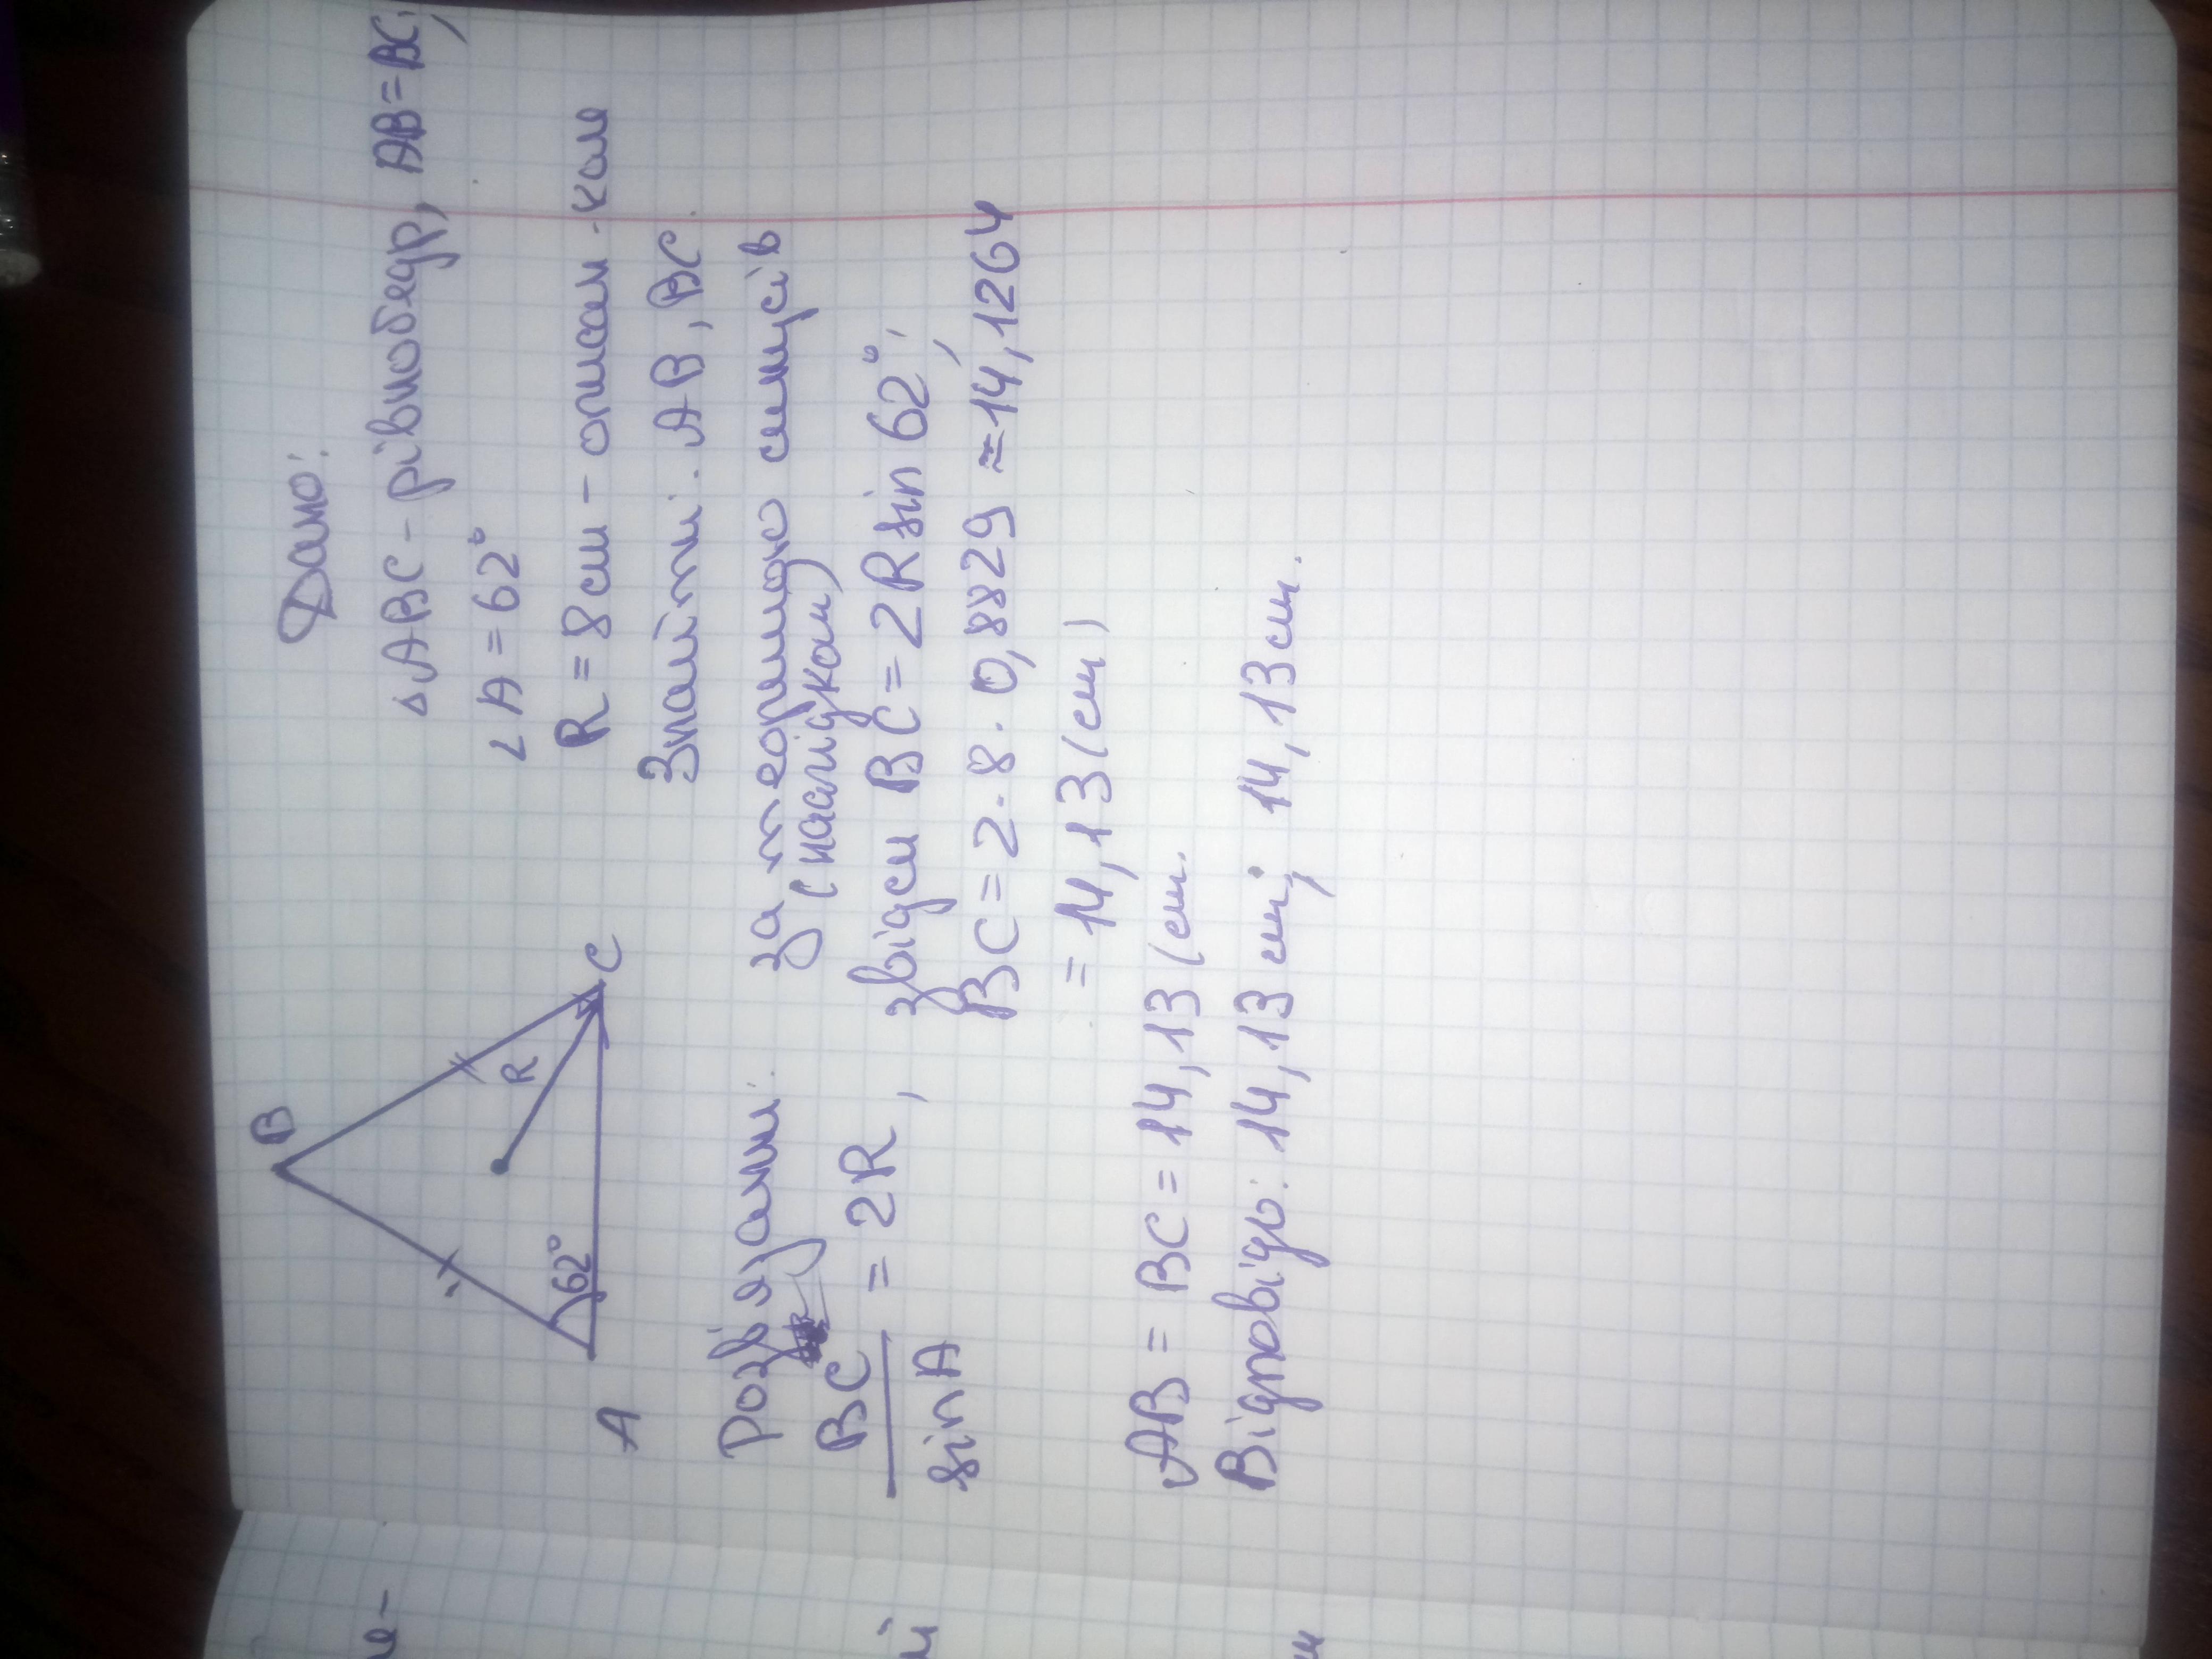 Дано:
△ABC - рівнобедр, AB=BC,
∠A=62°
R=8см - описан. кола
Знайти: AB, BC
B
R
62°
A
C
Розв'язання:
за теоремою синусів
(наслідком)
BC/sin A = 2R, звідси BC=2R sin 62°;
BC=2·8·0,8829≈14,1264
=14,13(см)
AB=BC=14,13(см.
Відповідь: 14,13см; 14,13см.